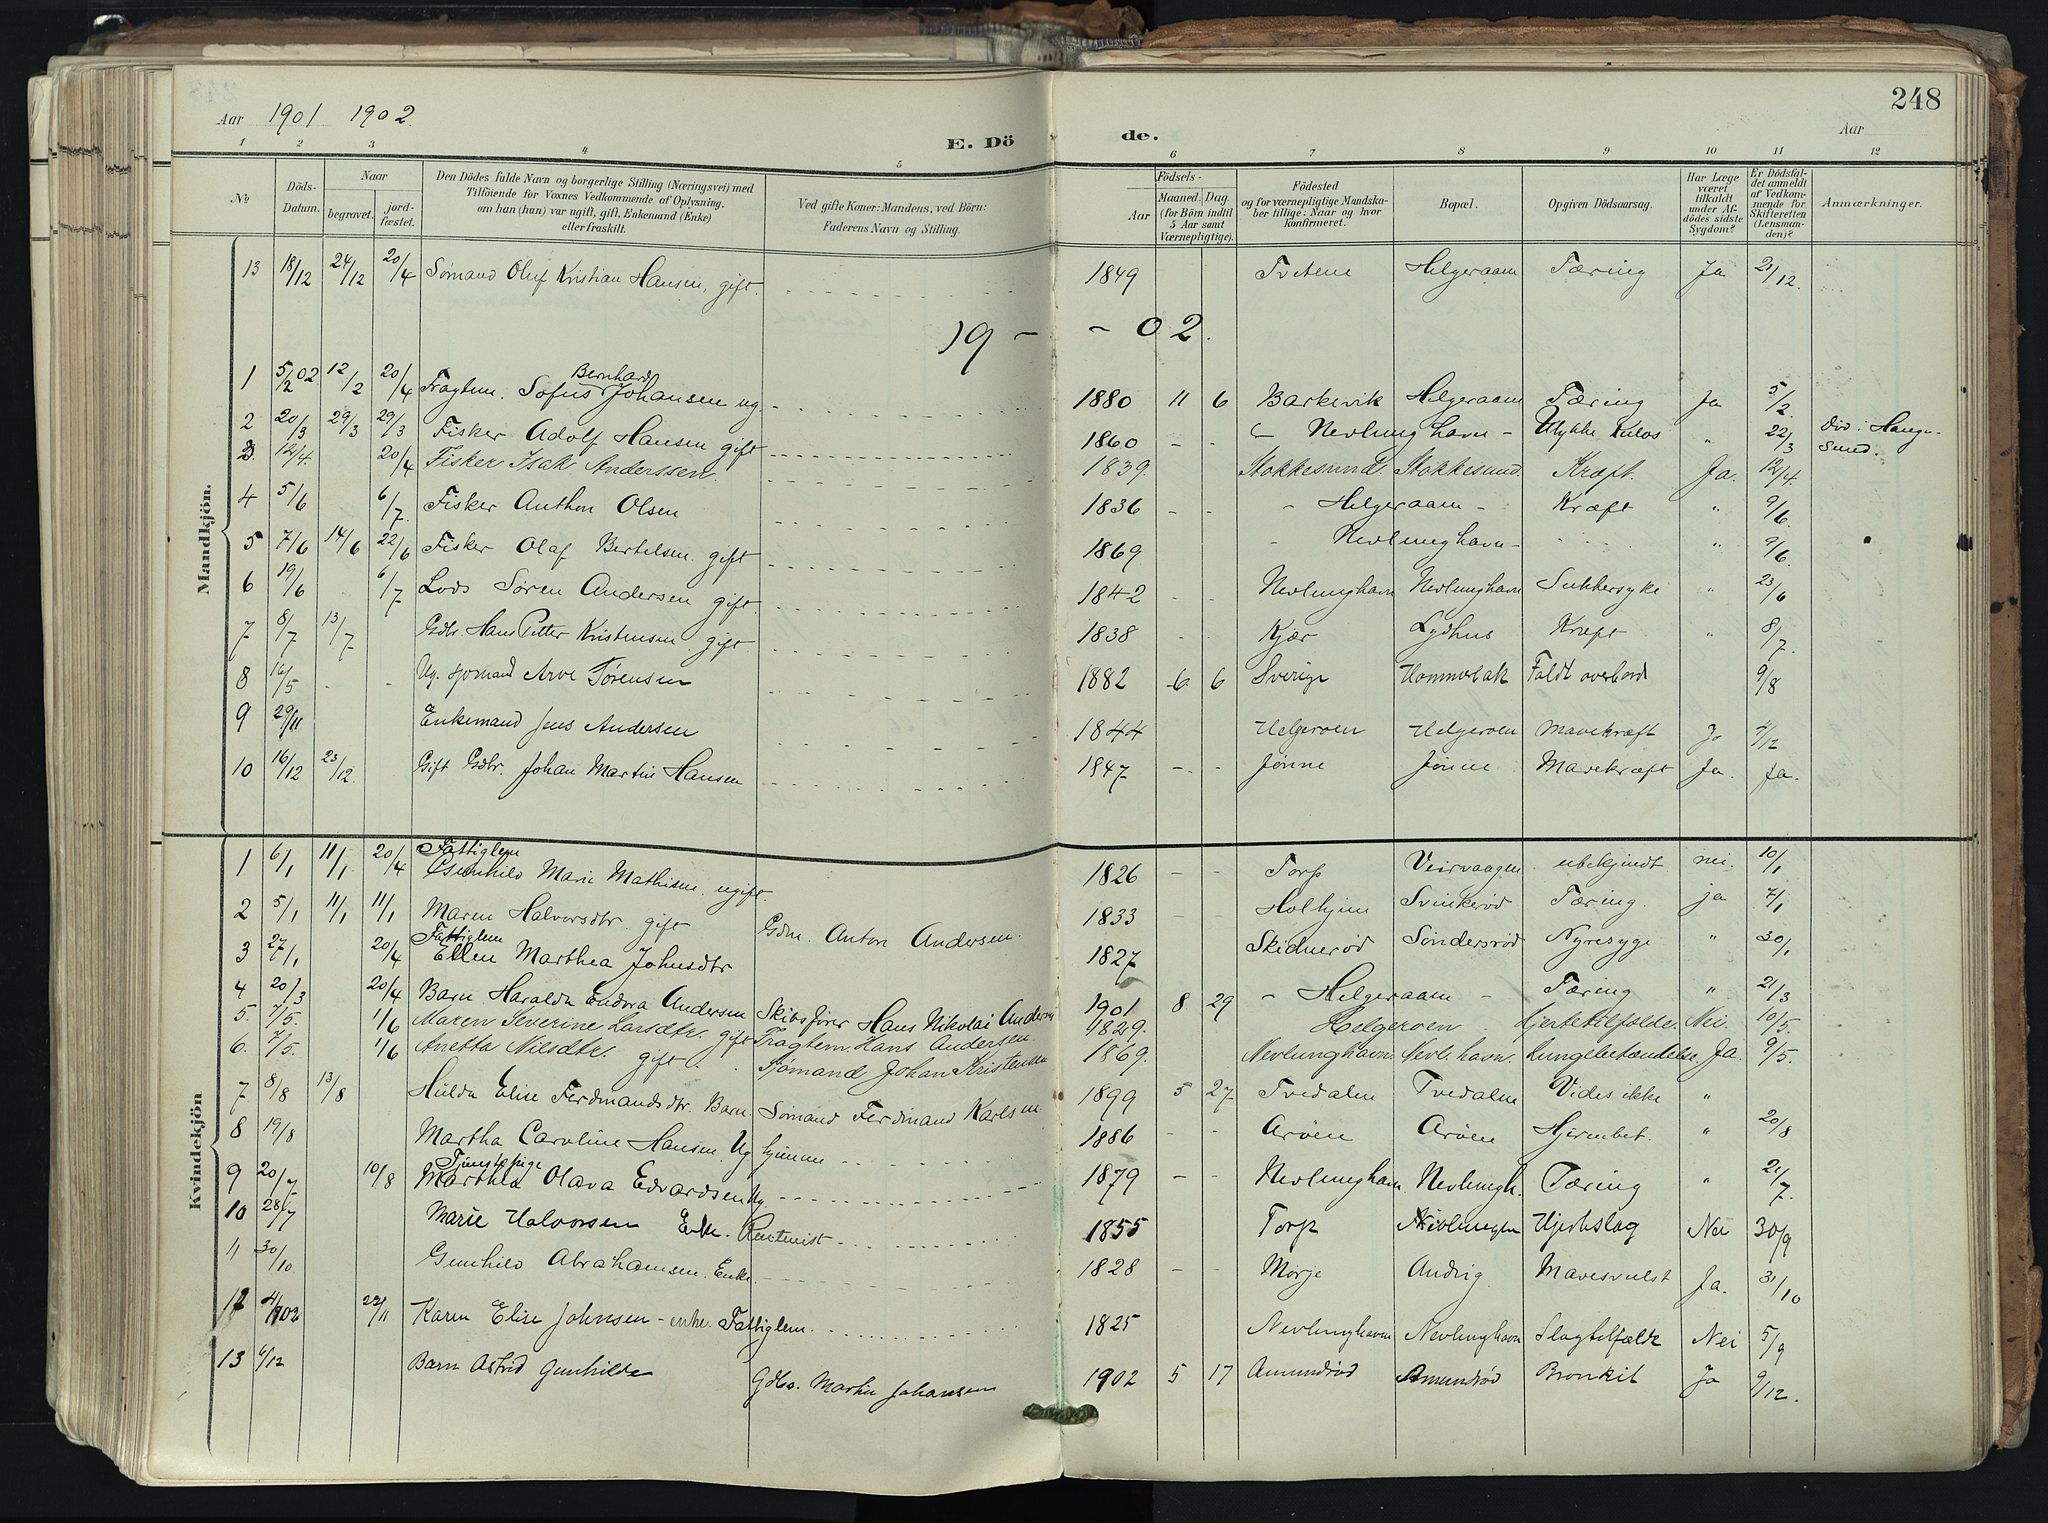 Aar 1901 1902.
E. Dö de.
Aar
248
1 2 3 4 5 6 7 8 9 10 11 12
No
Döds-Datum.
Naar
begravet.
jord-fæstet.
Den Dödes fulde Navn og borgerlige Stilling (Næringsvei) med
Tilföiende for Voxnes Vedkommende af Oplysning,
om han (hun) var ugift, gift, Enkemand (Enke)
eller fraskilt.
Ved gifte Koner: Mandens, ved Börn:
Faderens Navn og Stilling.
Födsels-
Aar
Maaned. Dag.
(for Börn indtil
5 Aar samt
Værnepligtige).
Födested
og for værnepligtige Mandska-
ber tillige: Naar og hvor
konfirmeret.
Bopæl.
Opgiven Dödsaarsag.
Har Læge
været
tilkaldt
under Af-
dödes sidste
Sygdom?
Er Dödsfal-
det anmeldt
af Vedkom-
mende for
Skifteretten
(Lensman-
den)?
Anmærkninger.
Mandkjön.
13 18/12 24/12 20/4 Sømand Oluf Kristian Hansen, gift. 1849 Tvetene Helgeraaen Tæring Ja 21/12.
19 - - 02.
1 5/2 02 12/2 20/4 Fragtem. Sofus Bernhard Johansen ug. 1880 11 6 Barkevik Helgeraaen Tæring Ja 5/2.
2 20/3 29/3 29/3 Fisker Adolf Hansen gift 1860 - - Nevlunghavn - Ulykke " 22/3
3. 12/4. 20/4 Fisker Isak Anderssen. 1839. Stokkesund. Stokkesund. Kræft. Ja. 12/4.
4 5/6 6/7. Fisker Anthon Olsen 1836 - - - Helgeraaen - Kræft " 9/6.
5 7/6 14/6 22/6 Fisker Olaf Bertelsen gift 1869 - Nevlunghavn - " 9/6.
6 19/6 6/7 Lods Søren Andersen gift. 1842 - - Nevlunghavn Nevlunghavn Sukkersyke " 23/6
7 8/7 13/7 Gdbr. Hans Petter Kristensen gift 1838 - - Kjær Lydhus Kræft " 8/7.
8 16/5 - - Ug. sjømand Arve Sørensen 1882 6 6 Sverige Hommerbak Faldt overbord 9/8
9 29/11 Enkemand Jens Andersen 1844 Helgeroen Helgeroen Mavekræft Ja 4/12
10 16/12 23/12. Gift Gdbr. Johan Martin Hansen 1847 - - Jønne Jønne Mavekræft Ja. Ja.
Kvindekjön
1 6/1 11/1 20/4 Fattiglem Gunhild Marie Mathisen ugift. 1826 - - Torp Veirvaagen ubekjendt nei. 10/1
2 5/1 11/1 11/1 Maren Halvorsdtr. gift Gdm. Anton Andersen. 1833 - - Holhjem Svinkerød Tæring. ja 7/1
3 27/1 20/4 Fattiglem Ellen Marthea Johnsdtr 1827 Skidnerød Søndersrød Nyresyge " 30/1
4 20/3 20/4 Barn Haralda Endora Andersen Skibsfører Hans Nikolai Andersen 1901 8 29 - Helgeraaen - Tæring " 21/3
5. 7/5. 1/6 Maren Severine Larsdtr. gift Fragtem. Hans Andersen 1829. Helgeroen. Hjertetilfælde. Nei. 10/5.
6. 7/5. 1/6 Anetta Nilsdtr. gift. Sjømand Johan Kristensen 1869. Nevlunghavn. Nevl. havn. Lungebetændelse. Ja. 9/5.
7 8/8 13/8 Hulda Elise Ferdinandsdtr. Barn. Sømand Ferdinand Karlsen. 1899 5 27 Tvedalen Tvedalen Vides ikke "
8 19/8 Martha Caroline Hansen. Ug hjemme 1886 - - Arøen Arøen Hjernebet. " 20/8
9 20/7 10/8 Tjenestepige Marthea Olava Edvardsen ug. 1879 - - Nevlunghavn Nevlungh. Tæring " 21/7.
10 28/7 Marie Halvorsen Enke. Rentenist 1855 Torp Hjerteslag Nei 30/9
11 30/10 Gunhild Abrahamsen. Enke. 1828 - - Mørje Andrig Mavesvulst Ja. 31/10
12 4/9 02 22/11 Karen Elise Johnsen - enke. Fattiglem. 1825 Nevlunghavn Nevlunghavn Slagtilfælde Nei 5/9
13 6/12 Barn Astrid Gunhilde Gdbr. Martin Johansen 1902 5 17 Amundrød Amundrød Bronkit Ja 9/12.